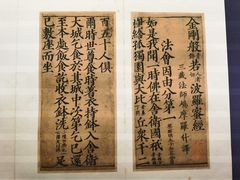 金剛般若波羅蜜經
三藏法師鳩摩羅什譯
法會因由分第一
如是我聞一時佛在舍衛國祇
樹給孤獨園與大比丘衆千二
百五十人俱
爾時世尊食時著衣持鉢入舍衛
大城乞食於其城中次第乞已還
至本處飯食訖收衣鉢洗足
已敷座而坐